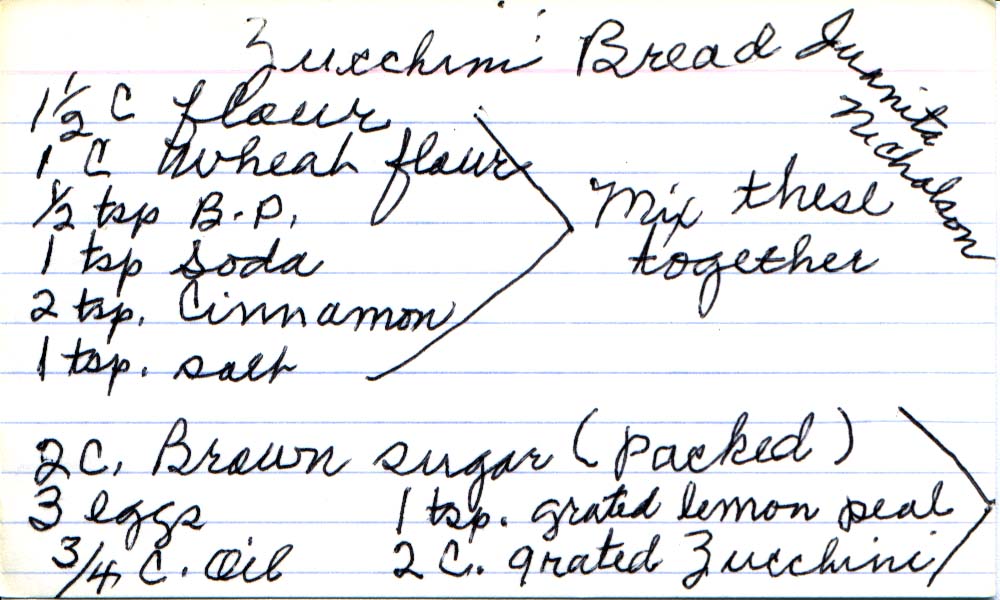 Zucchini Bread
Juanita
Nicholson
1 1/2 C flour
1 C Wheat flour
1/2 tsp B.P.
1 tsp Soda
2 tsp. Cinnamon
1 tsp. salt
Mix these
together
2 C. Brown sugar (packed)
3 eggs 1 tsp. grated lemon peal
3/4 C. Oil 2 C. grated Zucchini